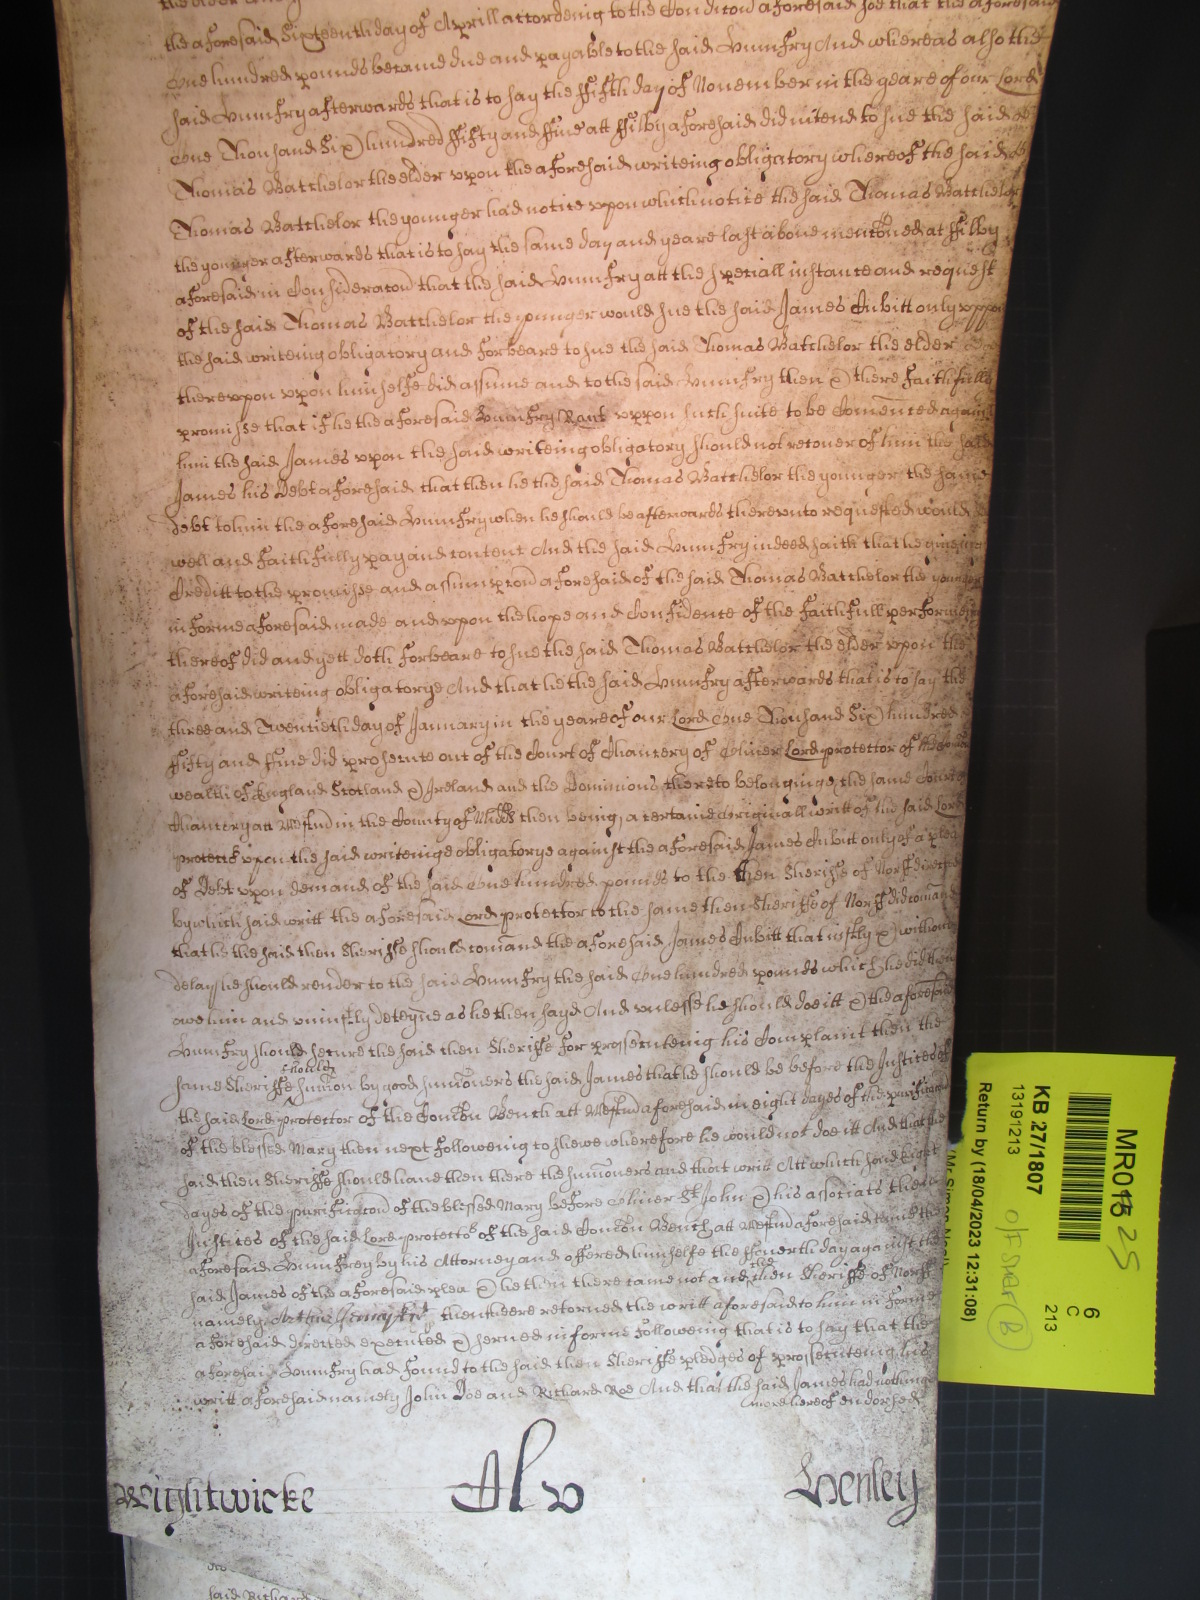 the aforesaid Sixteenth day of Aprill accordeinig to the Condicōn aforesaid soe that the aforesaid
One hundred pounds became due and payable to the said Humfry And whereas also the
said Humfry afterwards that is to say the ffifth day of November in the yeare of our Lord
One Thousand Six hundred ffifty and ffive att ffilby aforesaid did intend to sue the said
Thomas Batchelor the elder upon the aforesaid writeing obligatory whereof the said
Thomas Batchelor the younger had notice upon which notice the said Thomas Batchelor
the younger afterwards that is to say the same day and yeare last above mencōned at ffilby
aforesaid in Consideracōn that the said Humfry att the speciall instance and request
of the said Thomas Batchelor the younger would sue the said James Cubitt only uppon
the said writeing obligatory and forbeare to sue the said Thomas Batchelor the elder
thereupon upon himselfe did assume and to the said Humfry then & there faithfully
promisse that if he the aforesaid Humfry Rant uppon such suite to be Comenced against
him the said James upon the said writeing obligatory should not recover of him the said
James his Debt aforesaid that then he the said Thomas Batchelor the younger the same
debt to him the aforesaid Humfry when he should be afterwards thereunto requested would
well and faithfully pay and content And the said Humfry indeed saith that he giveing
Creditt to the promisse and assumpcōn aforesaid of the said Thomas Batchelor the younger
in forme aforesaid made and upon the hope and Confidence of the faithfull performance
thereof did and yett doth forbeare to sue the said Thomas Batchelor the elder upon the
aforesaid writeing obligatorye And that he the said Humfry afterwards that is to say the
three and Twentieth day of January in the yeare of our Lord One Thousand Six hundred
ffifty and ffive did prosecute out of the Court of Chancery of Oliver Lord protector of the Comon
wealth of England Scotland & Ireland and the Dominions thereto belonginge the same Court of
Chancery att Westm̄ in the County of Midd̄ then being a certaine Originall writt of the said Lord
protector upon the said writeinge obligatorye against the aforesaid James Cubitt only of a plea
of Debt upon demand of the said One hundred pounds to the then Sheriffe of Norff directed
by which said writt the aforesaid Lord protector to the same then Sheriffe of Norff did comand
that he the said then Sheriffe should comand the aforesaid James Cubitt that justly & without
delay he should render to the said Humfry the said One hundred pounds which he did then
owe him and uniustly deteyne as he then sayd And unlesse he should doe itt & the aforesaid
Humfry should secure the said then Sheriffe for prossecuteinig his Complaint then the
same Sheriffe should sumōn by good sumōners the said James that he should be before the Justices of
the said Lord protector of the Comōn Bench att Westm̄ aforesaid in eight dayes of the purificacōn
of the blessed Mary then next followeinig to shewe wherefore he would not doe itt And that the
said then Sheriffe should have then there the sumōners and that writt Att which said Eight
dayes of the purificacōn of the blessed Mary before Oliver St John & his associats then
Justices of the said Lord protector of the said Comōn Bench att Westm̄ aforesaid came the
aforesaid Humfrey by his Attorney and offered himselfe the ffourth day against the
said James of the aforesaid plea & he then there came not and the then Sheriffe of Norff
namely Arthur then there retorned the writt aforesaid to him in forme
aforesaid directed executed & served in forme followeing that is to say that the
aforesaid Humfry had found to the said then Sheriffe pledges of prossecuteinig his
writt aforesaid namely John Doe and Richard Roe And that the said James had nothinge
more hereof endorsed
Wightwicke Henley
said Richard
MR015
25
6
C
213
KB 27/1807
13191213
Return by (18/04/2023 12:31:08)